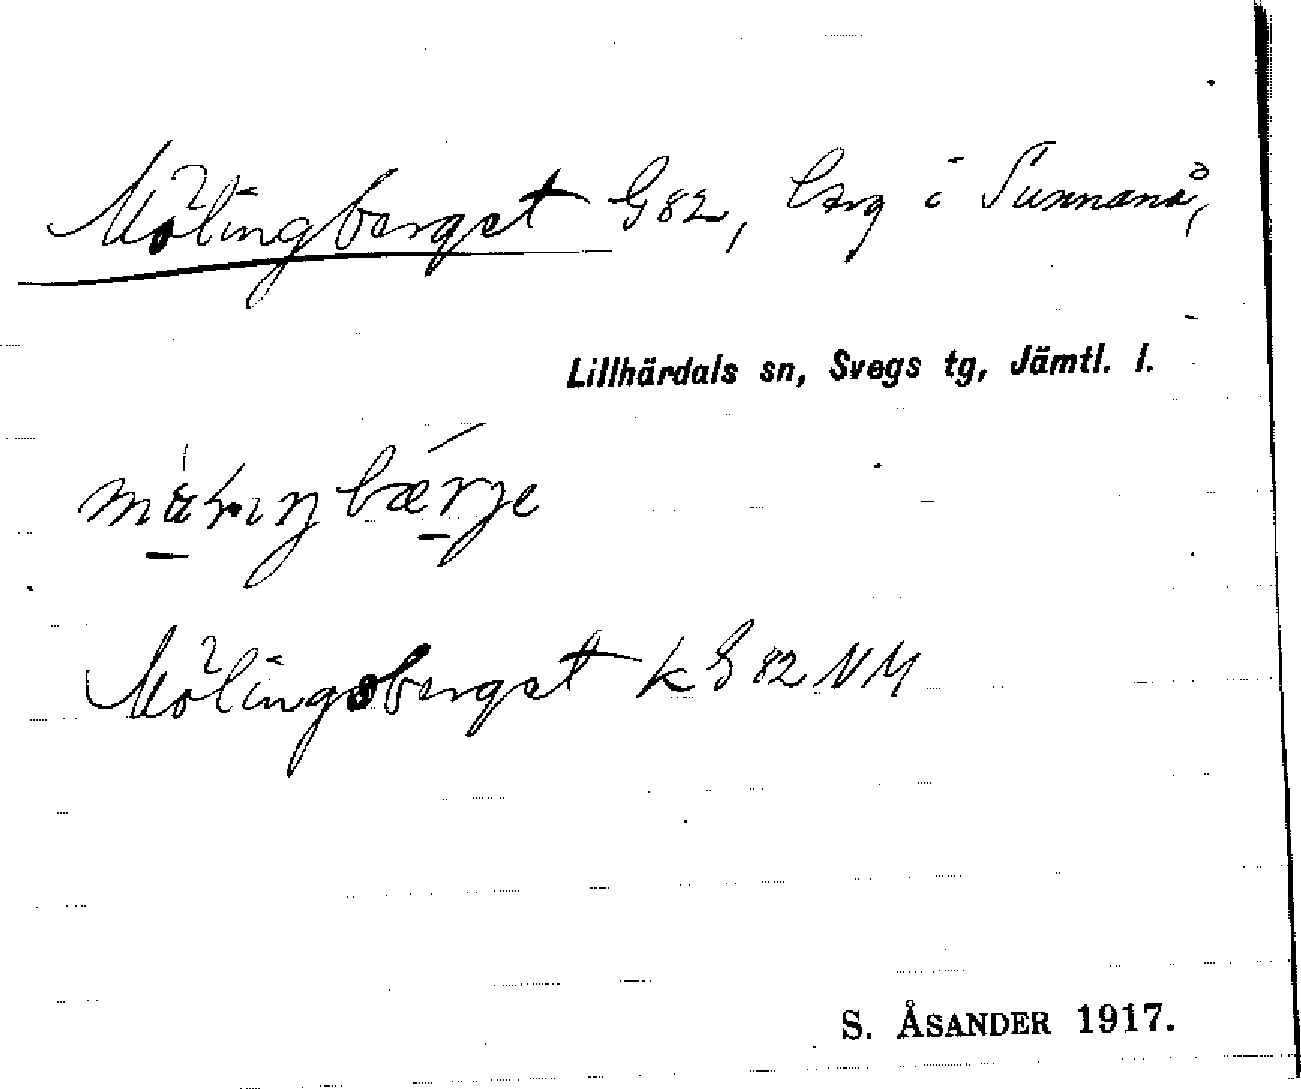 Mölingberget G82, berg i Sunnanå,
Lillhärdals sn, Svegs tg, Jämtl. l.
Mölingsberget k G 82 NM
S. ÅSANDER 1917.